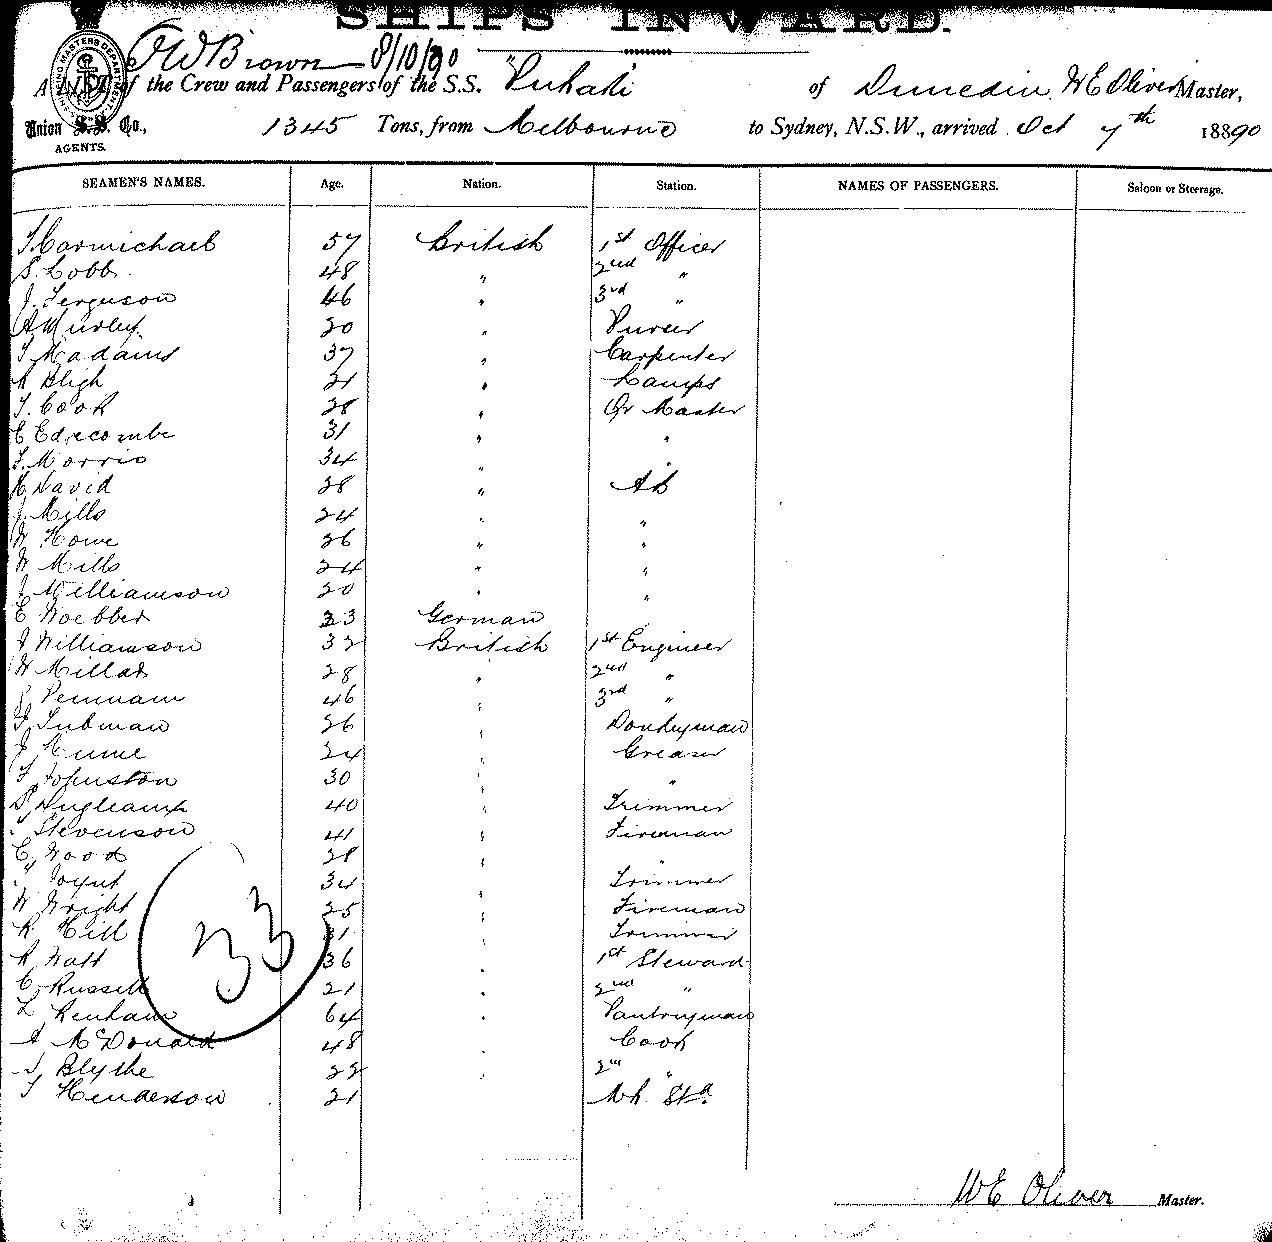 SHIPS INWARD.
SHIPPING MASTERS DEPARTMENT
F W Brown 8/10/90
A LIST of the Crew and Passengers of the S.S. "Pukaki of Dunedin, W E Oliver Master,
Union S.S. Co., 1345 Tons, from Melbourne to Sydney, N.S.W., arrived Oct 7th 18890
AGENTS.
SEAMEN'S NAMES. Age. Nation. Station. NAMES OF PASSENGERS. Saloon or Steerage.
Carmichael 57 British 1st Officer
S. Cobb 48 " 2nd "
J. Ferguson 46 " 3rd "
A Hurley 20 " Purser
T Madams 37 " Carpenter
R Bligh 21 " Lamps
T. Cook 28 " Qr Master
E Edgecombe 31 " "
T. Morris 34 "
H David 28 " AB
J. Mills 24 " "
W Howe 26 " "
W Mills 24 " "
J Williamson 20 " "
E Woebber 23 German
J Williamson 32 British 1st Engineer
W Millar 28 " 2nd "
Penman 46 " 3rd "
Tubman 26 " Donkeyman
J Hume 24 " Greaser
F Johnston 30 " "
40 " Trimmer
Stevenson 41 " Fireman
C Wood 28 " "
Joynt 34 " Trimmer
W Wright 25 " Fireman
R. Hill 31 " Trimmer
R Watt 36 " 1st Steward
C Russell 21 " 2nd "
L Renham 64 " Pantryman
A McDonald 48 " Cook
Blythe 22 " 2nd "
T Henderson 21 Std
33
W E Oliver Master.